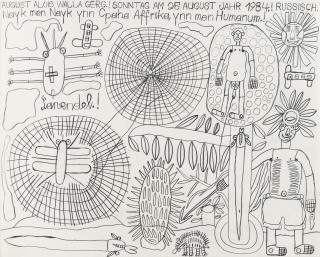 AUGUST ALOIS WALLA GERG.! SONNTAG AM 26 AUGUST JAHR 1984.! RUSSISCH.
Nevk men Nevk ynn Affrika, ynn men Humanum.!
Lavendel.!